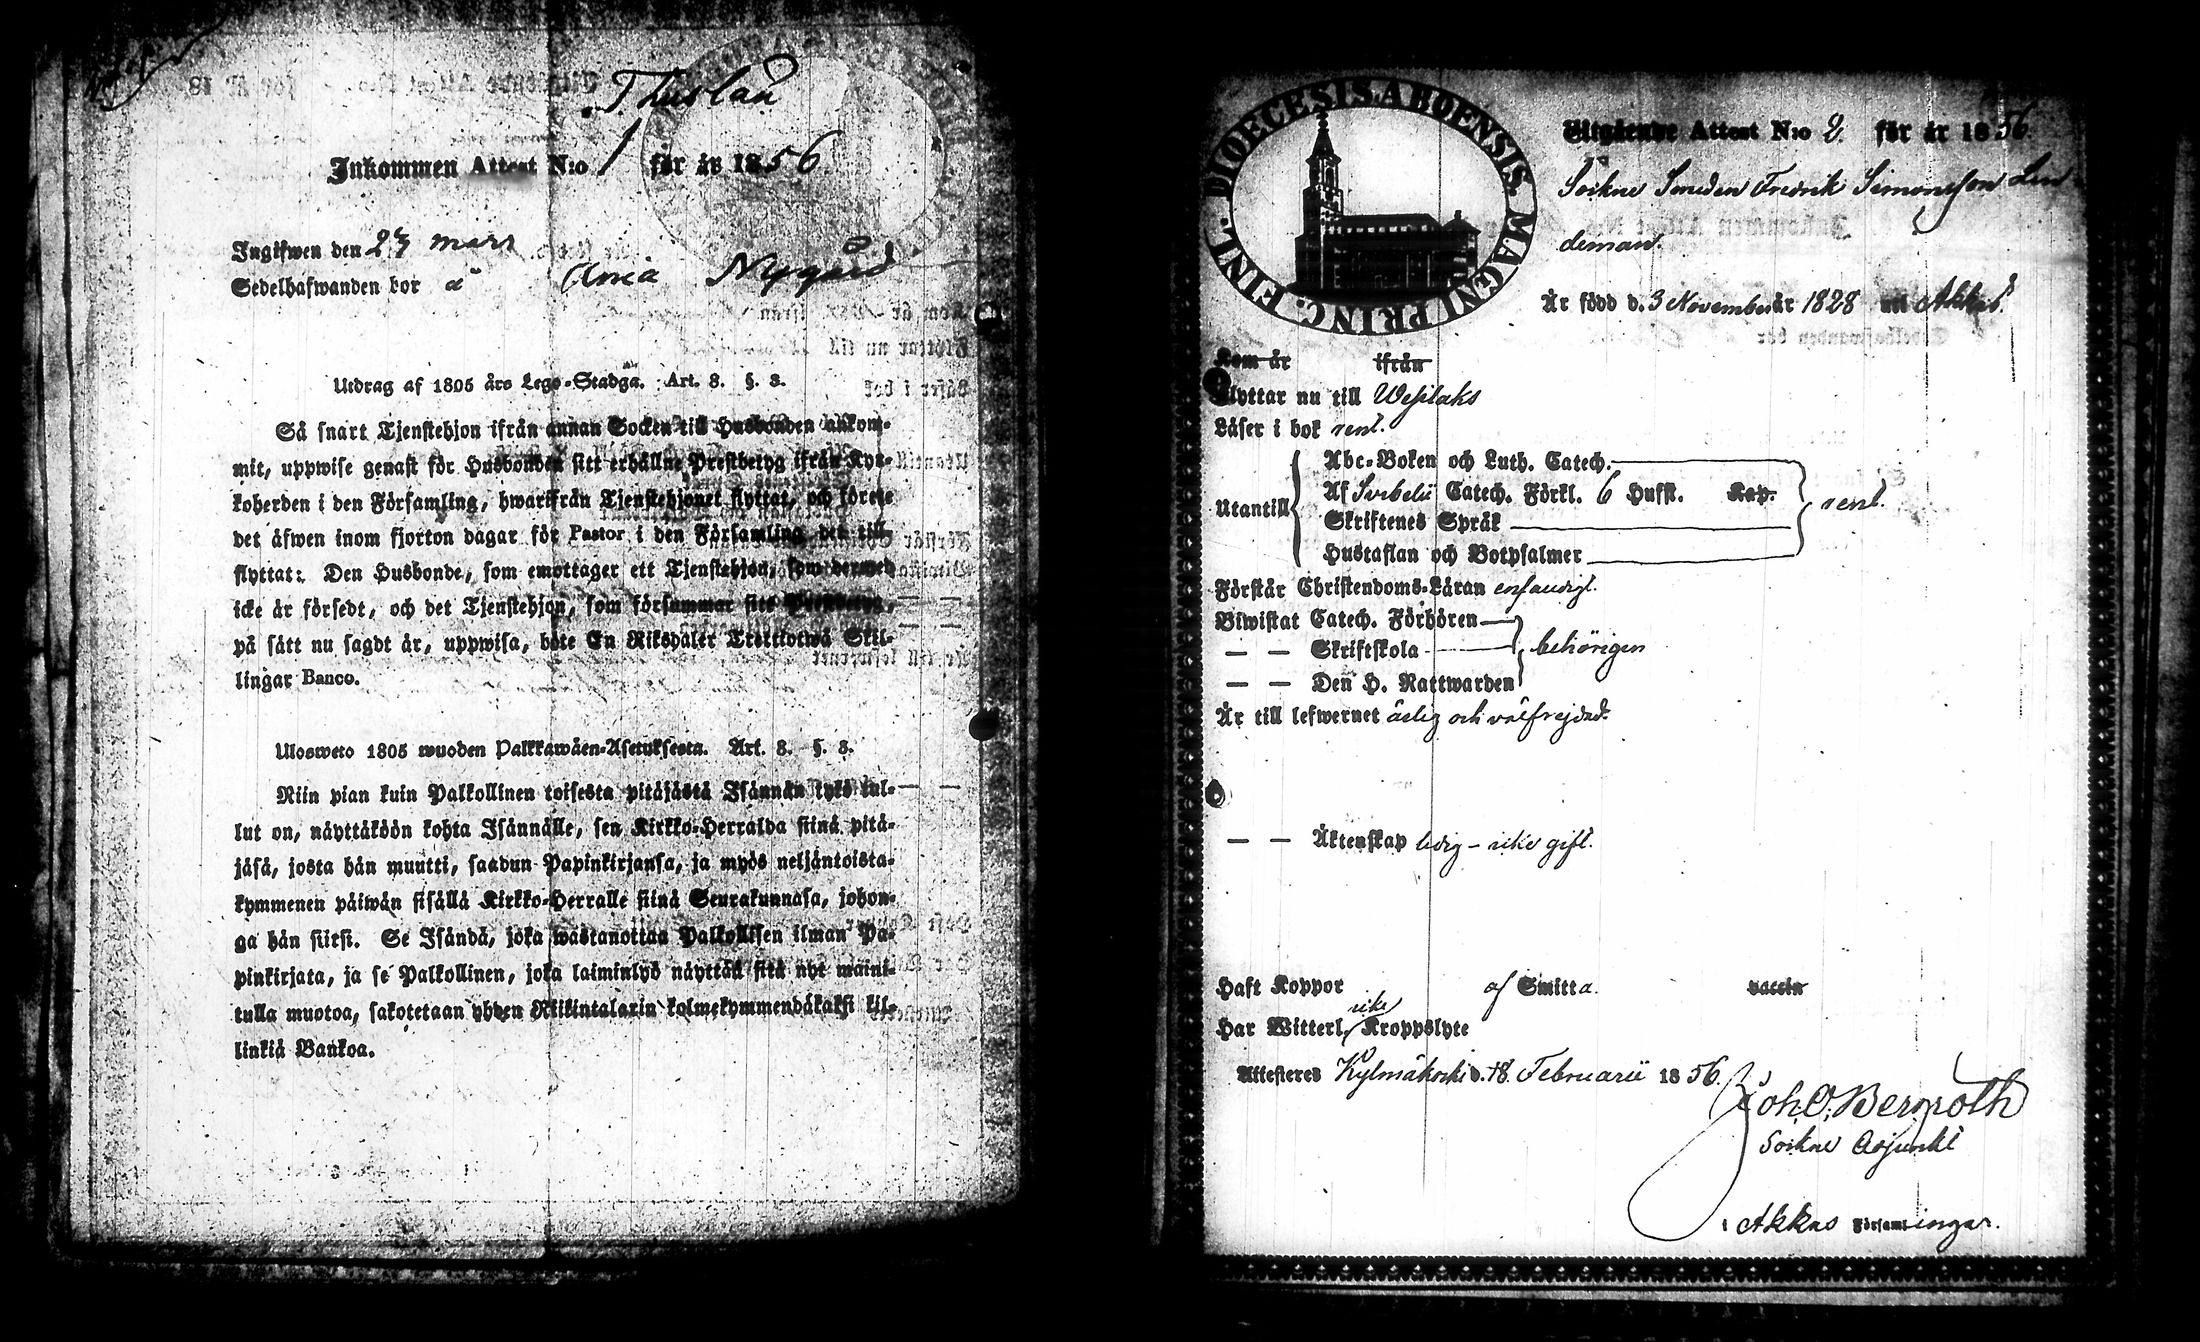 Thuslan
Inkommen Attest N:o 1 för år 1856
Ingifwen den 27 mars
Sedelhafwanden bor å Nygård
Utdrag af 1805 års Lego-Stadga. Art. 8. §. 3.
Så snart Tjenstehjon ifrån annan Socken till Husbonden ankom-
mit, uppwise genast för Husbonden sitt erhållne Prestbetyg ifrån Kyr-
koherden i den Församling, hwarifrån Tjenstehjonet flyttat, och förete
det äfwen inom fjorton dagar för Pastor i den Församling det till-
flyttat: Den Husbonde, som emottager ett Tjenstehjon, som dermed
icke är försedt, och det Tjenstehjon, som försummar sitt Prestbetyg,
på sätt nu sagdt är, uppwisa, böte En Riksdaler Trettiotwå Skil-
lingar Banco.
Ulosweto 1805 wuoden Palkkawäen-Asetuksesta. Art. 8. §. 3.
Niin pian kuin Palkollinen toisesta pitäjästä Isännän tykö tul-
lut on, näyttäköön kohta Isännälle, sen Kirkko-Herralda siinä pitä-
jäsä, josta hän muutti, saadun Papinkirjansa, ja myös neljäntoista-
kymmenen päiwän sisällä Kirkko-Herralle siinä Seurakunnasa, johon-
ga hän siirsi. Se Isändä, joka wastanottaa Palkollisen ilman Pa-
pinkirjata, ja se Palkollinen, joka laiminlyö näyttää sitä nyt maini-
tulla muotoa, sakotetaan yhden Riikintalarin kolmekymmendäkaksi kil-
linkiä Bankoa.
DIOECESIS ABOENSIS MAGNI PRINC. FINL.
Utgående Attest N:o 2 för år 1856.
Sockne Smeden Fredrik Simonsson Lin
deman.
Är född d. 3 November år 1828 uti Akkas.
Kom år ifrån
Flyttar nu till Wesilaks
Läser i bok rent.
Utantill
Abc-Boken och Luth. Catech.
Af Svebelii Catech. Förkl. 6 Hufst. Kap.
Skriftenes Språk
Hustaflan och Botpsalmer
rent.
Förstår Christendoms-Läran enfaldigt.
Biwistat Catech. Förhören
— — Skriftskola
— — Den H. Nattwarden
behörigen
Är till lefwernet ärlig och välfrejdad.
— — Äktenskap ledig – icke gift.
Haft Koppor af Smitta. vaccin
Har Witterl. icke Kroppslyte
Attesteres Kylmäkoski d. 18 Februarii 1856.
Joh. O. Bergroth
Sockne Adjunkt
i Akkas Församlingar.